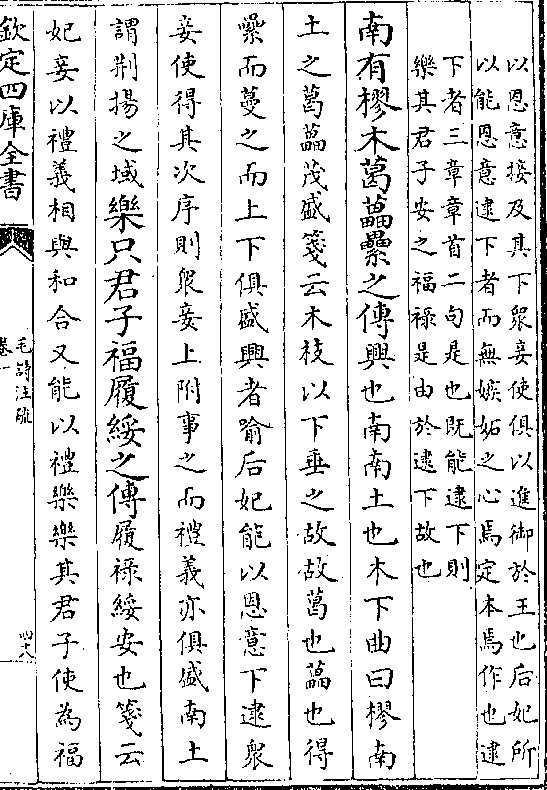 以恩意接及其下衆妾使俱以進御於王也后妃所
以能恩意逮下者而無嫉妬之心焉定本焉作也逮
下者三章章首二句是也既能逮下則
樂其君子安之福祿是由於逮下故也
南有樛木葛藟纍之傳興也南南土也木下曲曰樛南
土之葛藟茂盛箋云木枝以下垂之故故葛也藟也得
纍而蔓之而上下俱盛興者喻后妃能以恩意下逮衆
妾使得其次序則衆妾上附事之而禮義亦俱盛南土
謂荆揚之域樂只君子福履綏之傳履祿綏安也箋云
妃妾以禮義相與和合又能以禮樂樂其君子使為福
欽定四庫全書
毛詩注疏
卷一
四十八